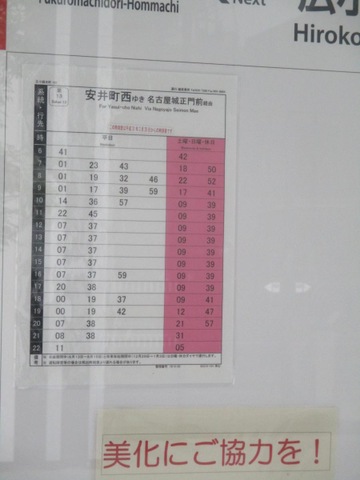 Fukuromachidori-Hommachi
Next
Hiroko
系統・行先
安井町西ゆき 名古屋城正門前経由
時
平日
土曜・日曜・休日
6 41 42
7 01 23 43 18 50
8 01 19 32 46 22 52
9 01 17 39 59 17 41
10 14 36 57 09 39
11 22 45 09 39
12 07 37 09 39
13 07 37 09 39
14 07 37 09 39
15 07 37 09 39
16 07 37 59 09 39
17 20 38 09 39
18 00 19 37 09 41
19 00 19 42 12 47
20 07 38 21 57
21 08 38 31
22 11 05
美化にご協力を!